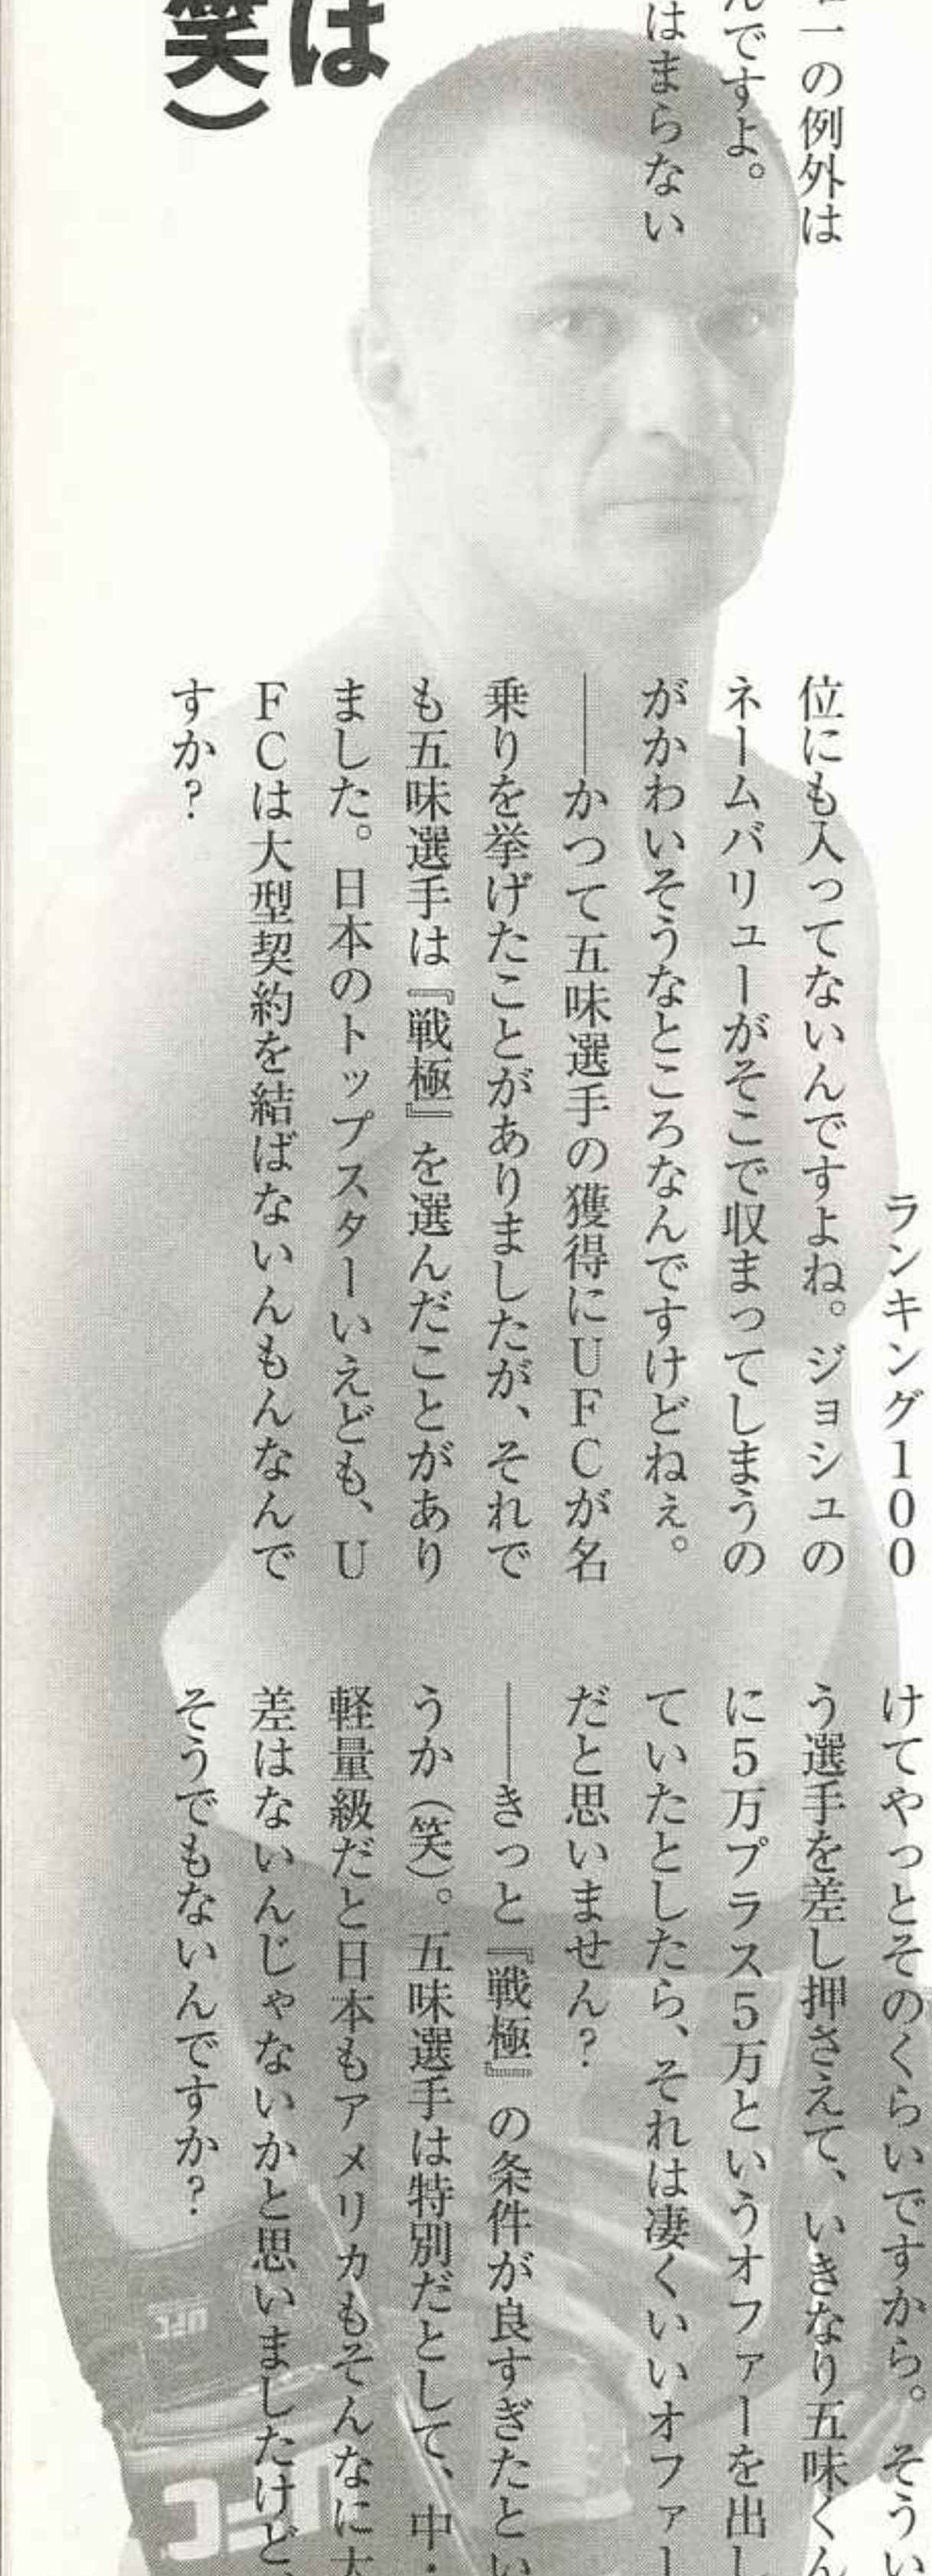 は
笑）
一の例外は
んですよ。
はまらない
ランキング１００
位にも入ってないんですよね。ジョシュの
ネームバリューがそこで収まってしまうの
がかわいそうなところなんですけどねぇ。
――かつて五味選手の獲得にＵＦＣが名
乗りを挙げたことがありましたが、それで
も五味選手は『戦極』を選んだことがあり
ました。日本のトップスターいえども、Ｕ
ＦＣは大型契約を結ばないんもんなんで
すか？
けてやっとそのくらいですから。そうい
う選手を差し押さえて、いきなり五味くん
に５万プラス５万というオファーを出し
ていたとしたら、それは凄くいいオファー
だと思いません？
――きっと『戦極』の条件が良すぎたとい
うか（笑）。五味選手は特別だとして、中・
軽量級だと日本もアメリカもそんなに大
差はないんじゃないかと思いましたけど、
そうでもないんですか？
UFC